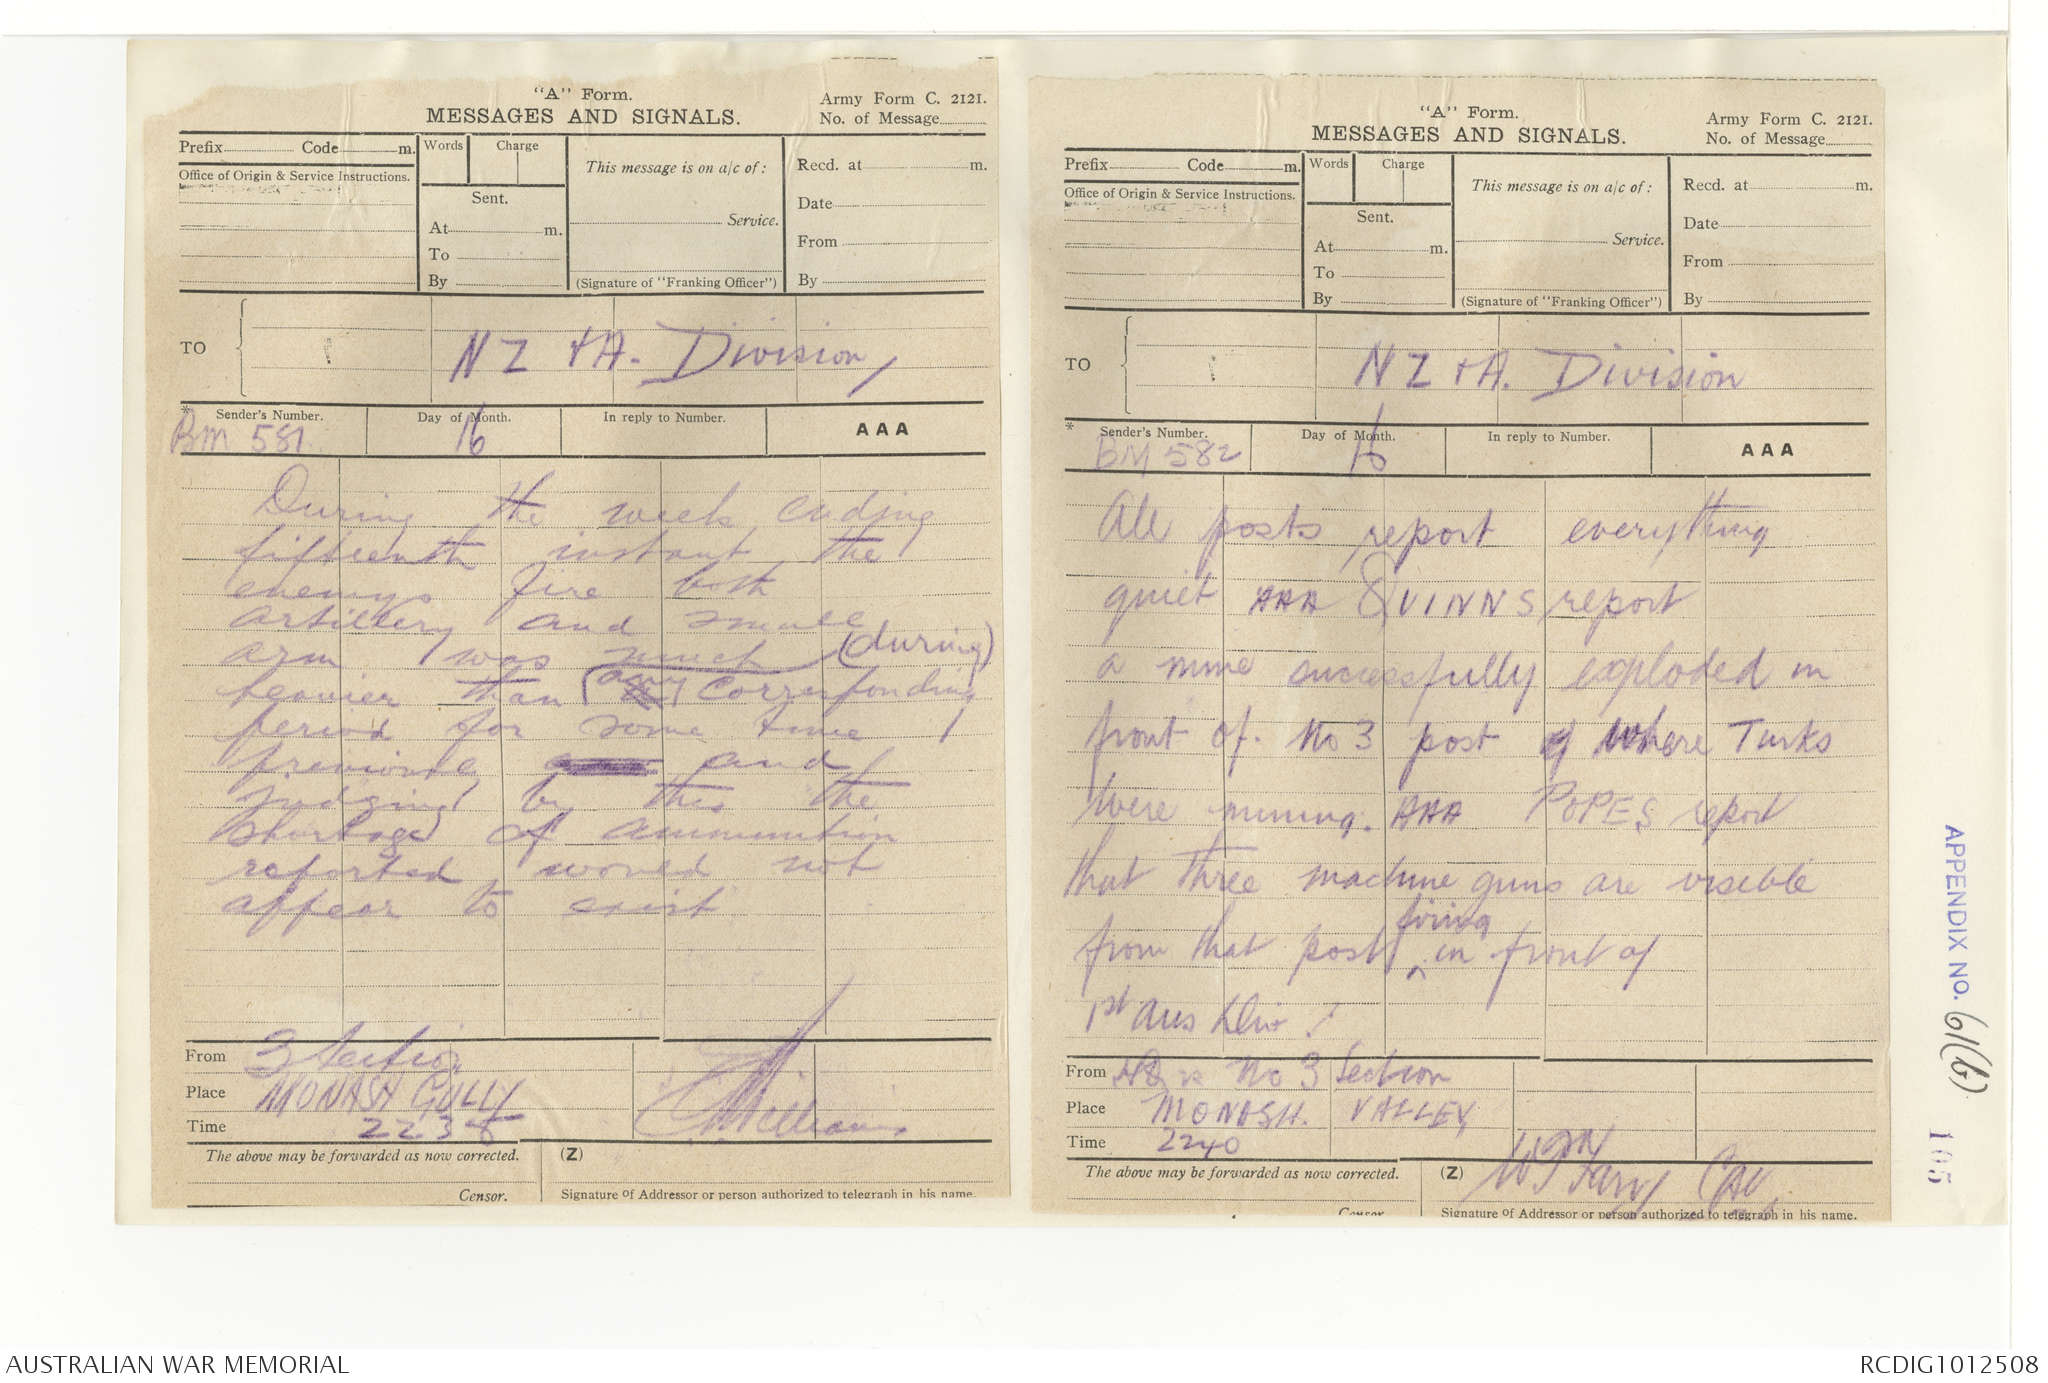 "A" Form.
MESSAGES AND SIGNALS.
Army Form C. 2121.
No. of Message
Prefix Code m.
Words Charge
This message is on a/c of :
Recd. at m.
Office of Origin & Service Instructions.
Sent.
Date
At m.
Service.
From
To
By
(Signature of "Franking Officer")
By
TO
NZ & A. Division
* Sender's Number. Day of Month. In reply to Number. AAA
BM 581 16
During the week ending
fifteenth instant the
enemys fire both
artillery and small
arm was much (during)
heavier than (any) corresponding
period for some time
previous and
judging by this the
shortage of ammunition
reported would not
appear to exist
From 3 Section
Place MONASH GULLY
Time 2235
Williams
The above may be forwarded as now corrected. (Z)
Censor. Signature of Addressor or person authorized to telegraph in his name.
"A" Form.
MESSAGES AND SIGNALS.
Army Form C. 2121.
No. of Message
Prefix Code m.
Words Charge
This message is on a/c of :
Recd. at m.
Office of Origin & Service Instructions.
Sent.
Date
At m.
Service.
From
To
By
(Signature of "Franking Officer")
By
TO
NZ & A. Division
* Sender's Number. Day of Month. In reply to Number. AAA
BM 582 16
All posts report everything
quiet AAA QUINNS report
a mine successfully exploded in
front of No 3 post where Turks
were mining. AAA POPES report
that three machine guns are visible
from that post firing in front of
1st Aus Div
From No 3 Section
Place MONASH. VALLEY
Time 2240
The above may be forwarded as now corrected. (Z)
Censor. Signature of Addressor or person authorized to telegraph in his name.
APPENDIX NO. 61(b)
105
AUSTRALIAN WAR MEMORIAL
RCDIG1012508